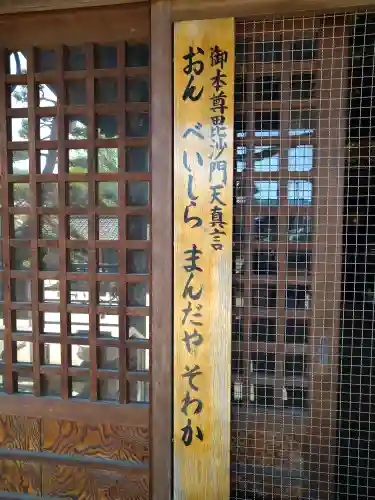 御本尊毘沙門天真言
おん べいしら まんだやそわか